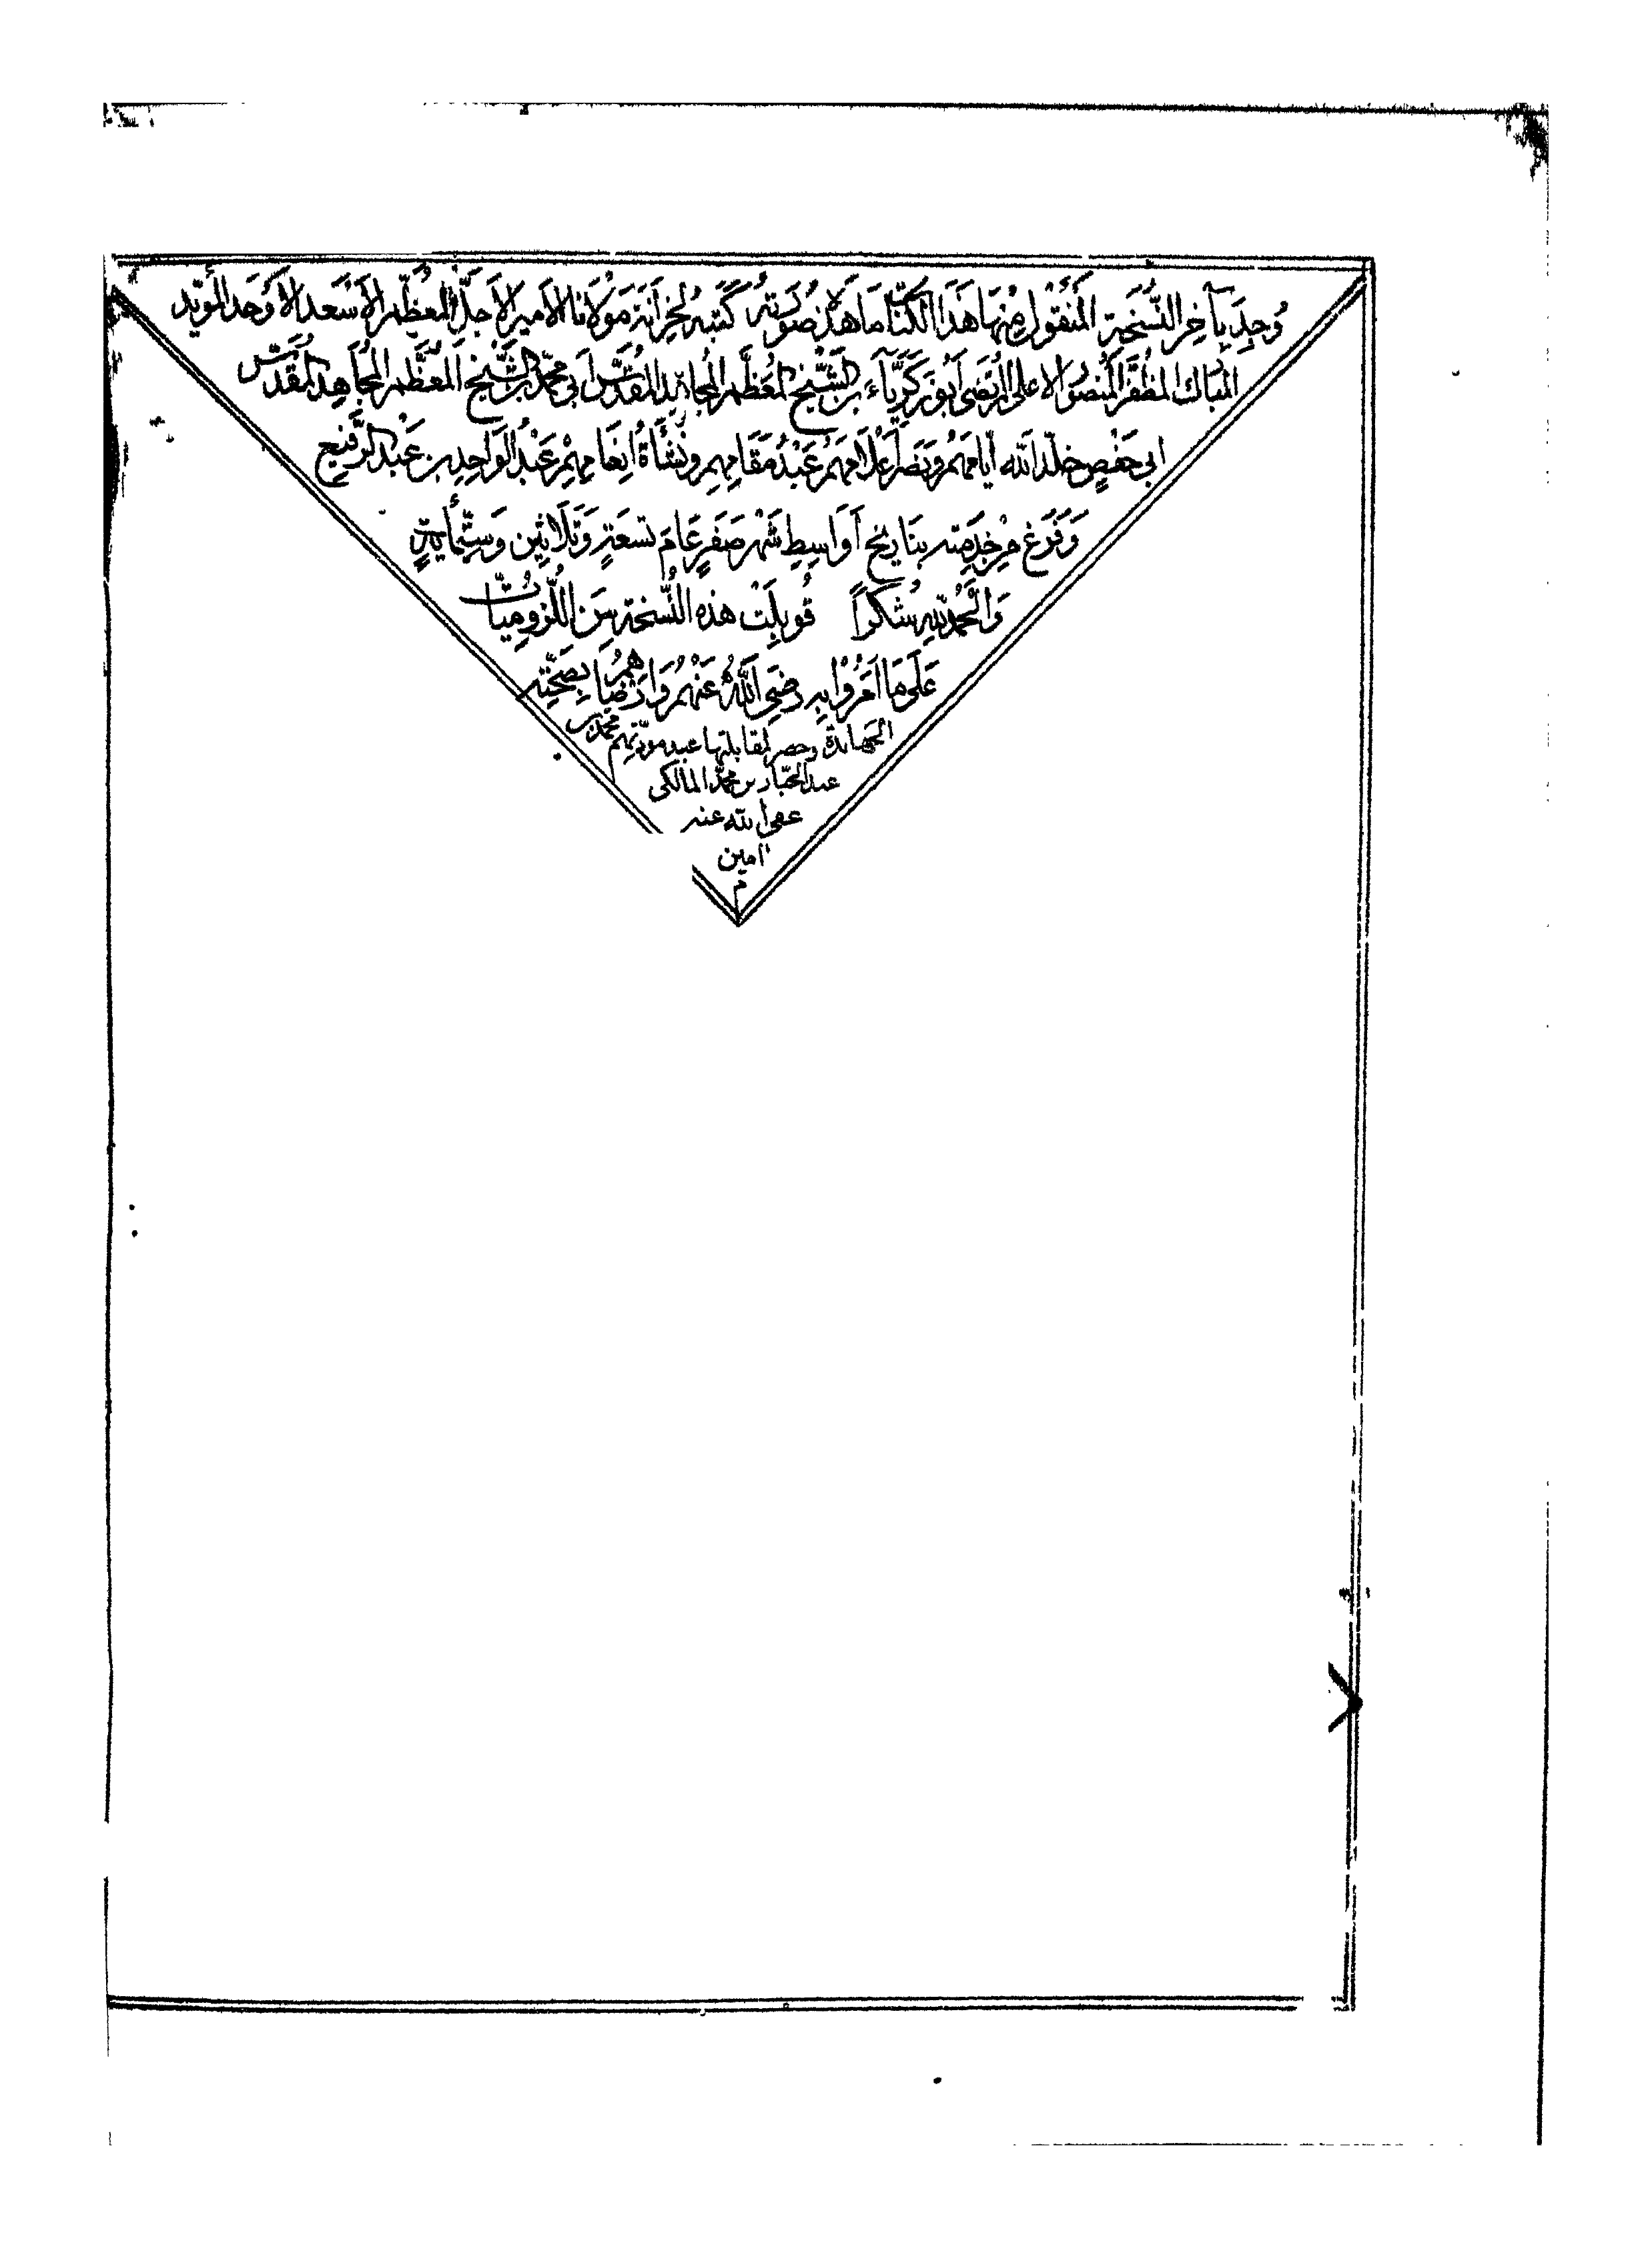 وُجِدَ بِآخِرِ النُّسْخَةِ المَنْقُولِ مِنْهَا هَذَا الكِتَابُ مَا هَذِهِ صُورَتُهُ كَتَبَهُ لِخِزَانَةِ مَوْلَانَا الأَمِيرِ الأَجَلِّ المُعَظَّمِ الأَسْعَدِ الأَوْحَدِ المُؤَيَّدِ
المُبَارَكِ المُظَفَّرِ المَنْصُورِ الأَعْلَى المُرْتَضَى أَبُو زَكَرِيَّآءَ بْنِ الشَّيْخِ المُعَظَّمِ المُجَاهِدِ المُقَدَّسِ أَبِي مُحَمَّدِ بْنِ الشَّيْخِ المُعَظَّمِ المُجَاهِدِ المُقَدَّسِ
ابي حَفْصٍ خَلَّدَ اللهُ أَيَّامَهُمْ وَنَصَرَ أَعْلَامَهُمْ عَبْدُ مَقَامِهِمْ وَنَشْأَةُ إِنْعَامِهِمْ عَبْدُ الوَاحِدِ بن عَبْدِ الرَّفِيعِ
وَفَرَغَ مِنْ خِدْمَتِهِ بِتَارِيخِ أَوَاسِطِ شَهْرِ صَفَرٍ عَامَ تِسْعَةٍ وَثَلَاثِينَ وَسِتِّمِأْيَةٍ
وَالْحَمْدُ لِلَّهِ شُكْراً قُوبِلَتْ هذه النُّسْخَة مِنَ اللُّزُومِيَّات
عَلَى مَا أَمَرُوا بِهِ رَضِيَ اللَّهُ عَنْهُمْ وَأَرْضَاهُمْ بِصُحْبَتِهِ
الجهابذة وحضر لمقابلتها عبد مودتهم محمد بن
عبد الجبار بن محمد المالكي
عفى الله عنه
امين
م